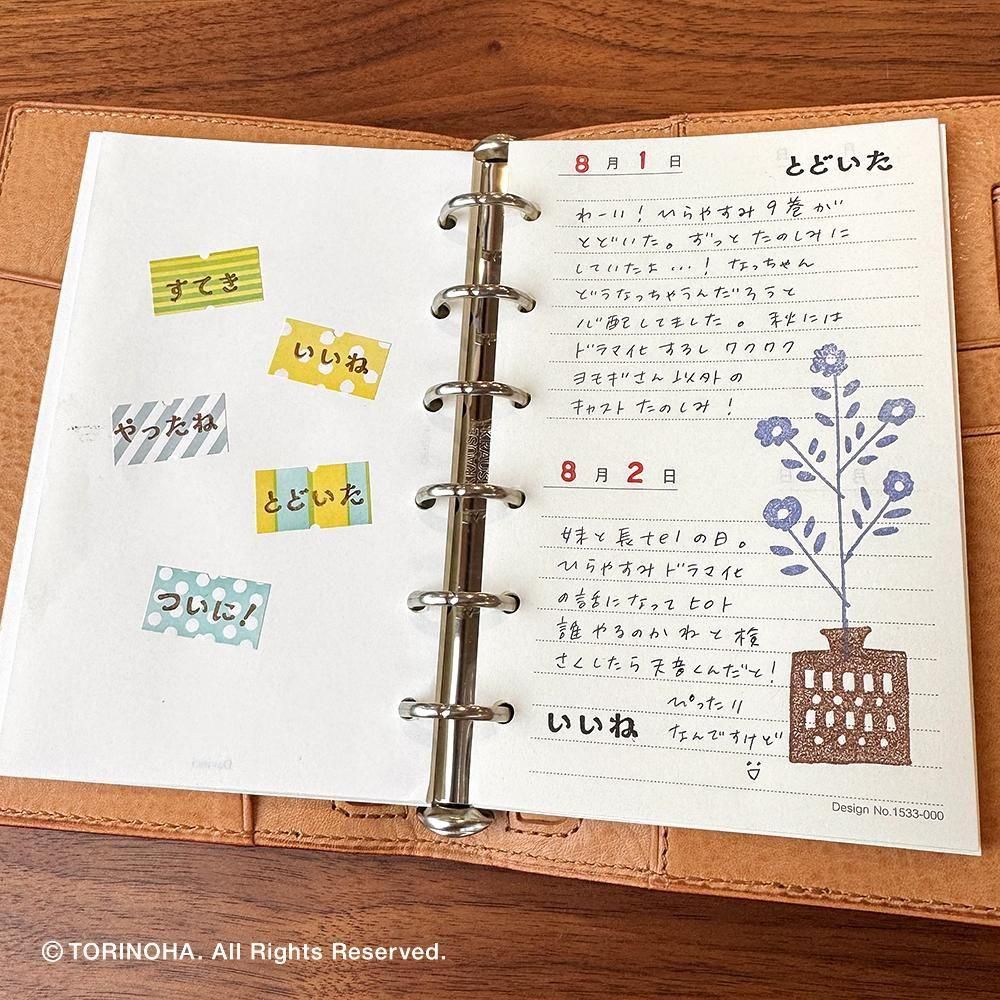 すてき
いいね
やったね
とどいた
ついに!
8月1日
とどいた
わーい! ひらやすみ 9巻が
とどいた。ずっと たのしみに
していたよ…! なっちゃん
どうなっちゃうんだろうと
心配してました。 秋には
ドラマ化するし ワクワク
ヨモギさん以外の
キャスト たのしみ!
8月2日
妹と長telの日。
ひらやすみドラマ化
の話になって ヒロト
誰やるのかねと検
さくしたら 天音くんだと!
ぴったり
いいね なんですけど
Design No.1533-000
© TORINOHA. All Rights Reserved.